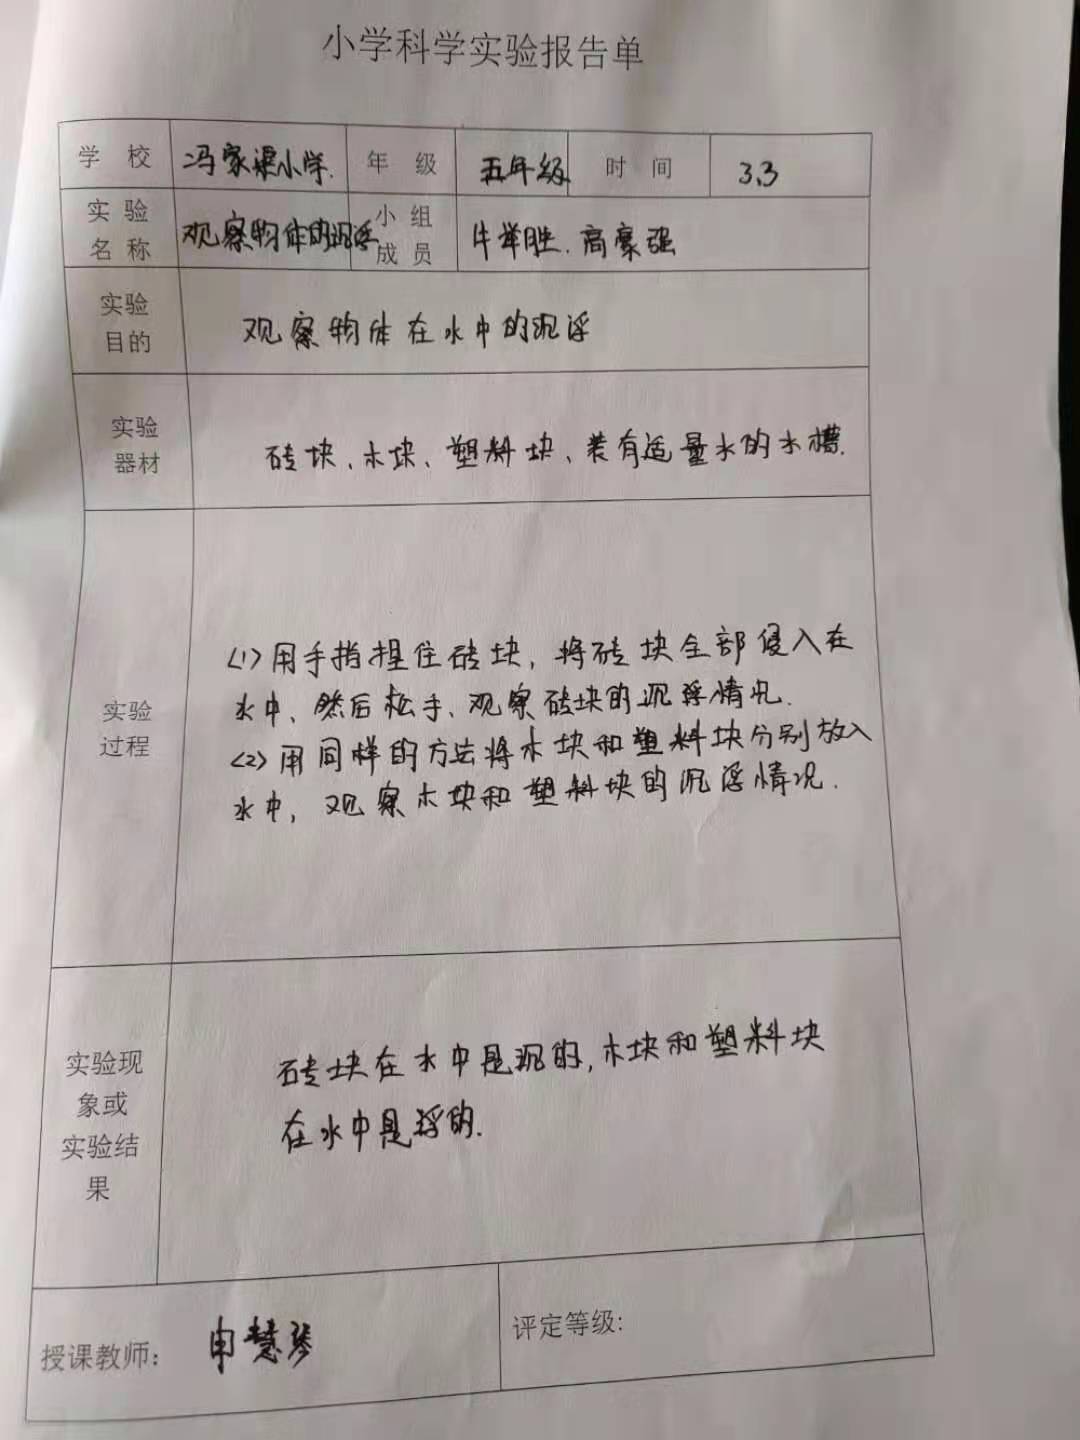 小学科学实验报告单
学 校 冯家梁小学. 年 级 五年级 时 间 3.3
实 验
名 称 观察物体的沉浮 小 组
成 员 牛举胜.高豪强
实验
目的 观察物体在水中的沉浮
实验
器材 砖块、木块、塑料块、装有适量水的水槽.
实验
过程
(1)用手指捏住砖块,将砖块全部侵入在
水中、然后松手、观察砖块的沉浮情况.
(2)用同样的方法将木块和塑料块分别放入
水中,观察木块和塑料块的沉浮情况.
实验现
象或
实验结
果
砖块在水中是沉的,木块和塑料块
在水中是浮的.
授课教师: 申慧琴 评定等级: